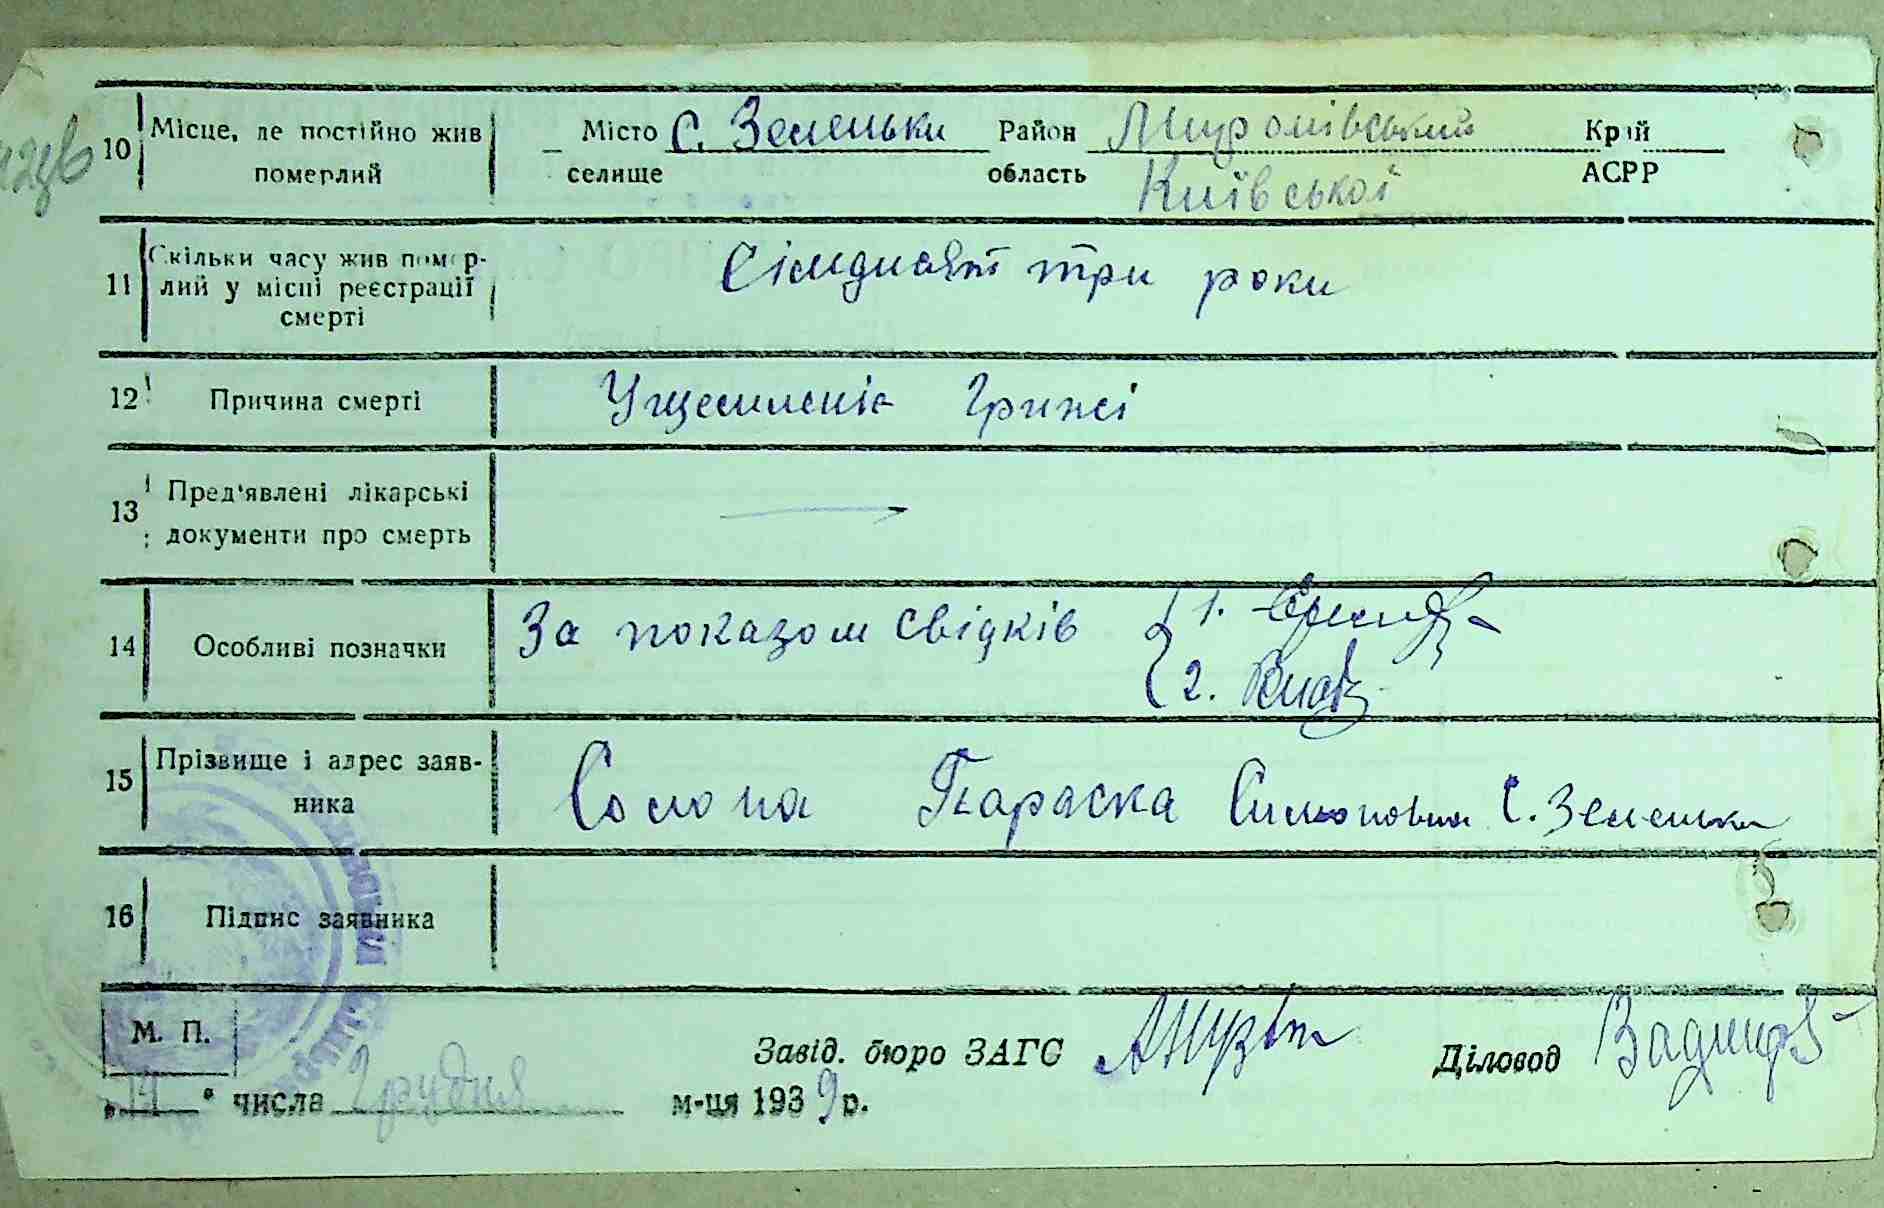 10 Місце, де постійно жив померлий
Місто селище с. Зеленьки Район Миронівський область Київської Край АСРР
11 Скільки часу жив помер-
лий у місці реєстрації
смерті
Сімдисят три роки
12 Причина смерті Ущемленіє Грижі
13 Пред'явлені лікарські
документи про смерть
14 Особливі позначки За показом свідків 1.
2.
15 Прізвище і адрес заяв-
ника
Солопа Параска Симоновна с. Зеленьки
16 Підпис заявника
М. П.
Завід. бюро ЗАГС Діловод
„14“ числа Грудня м-ця 1939 р.